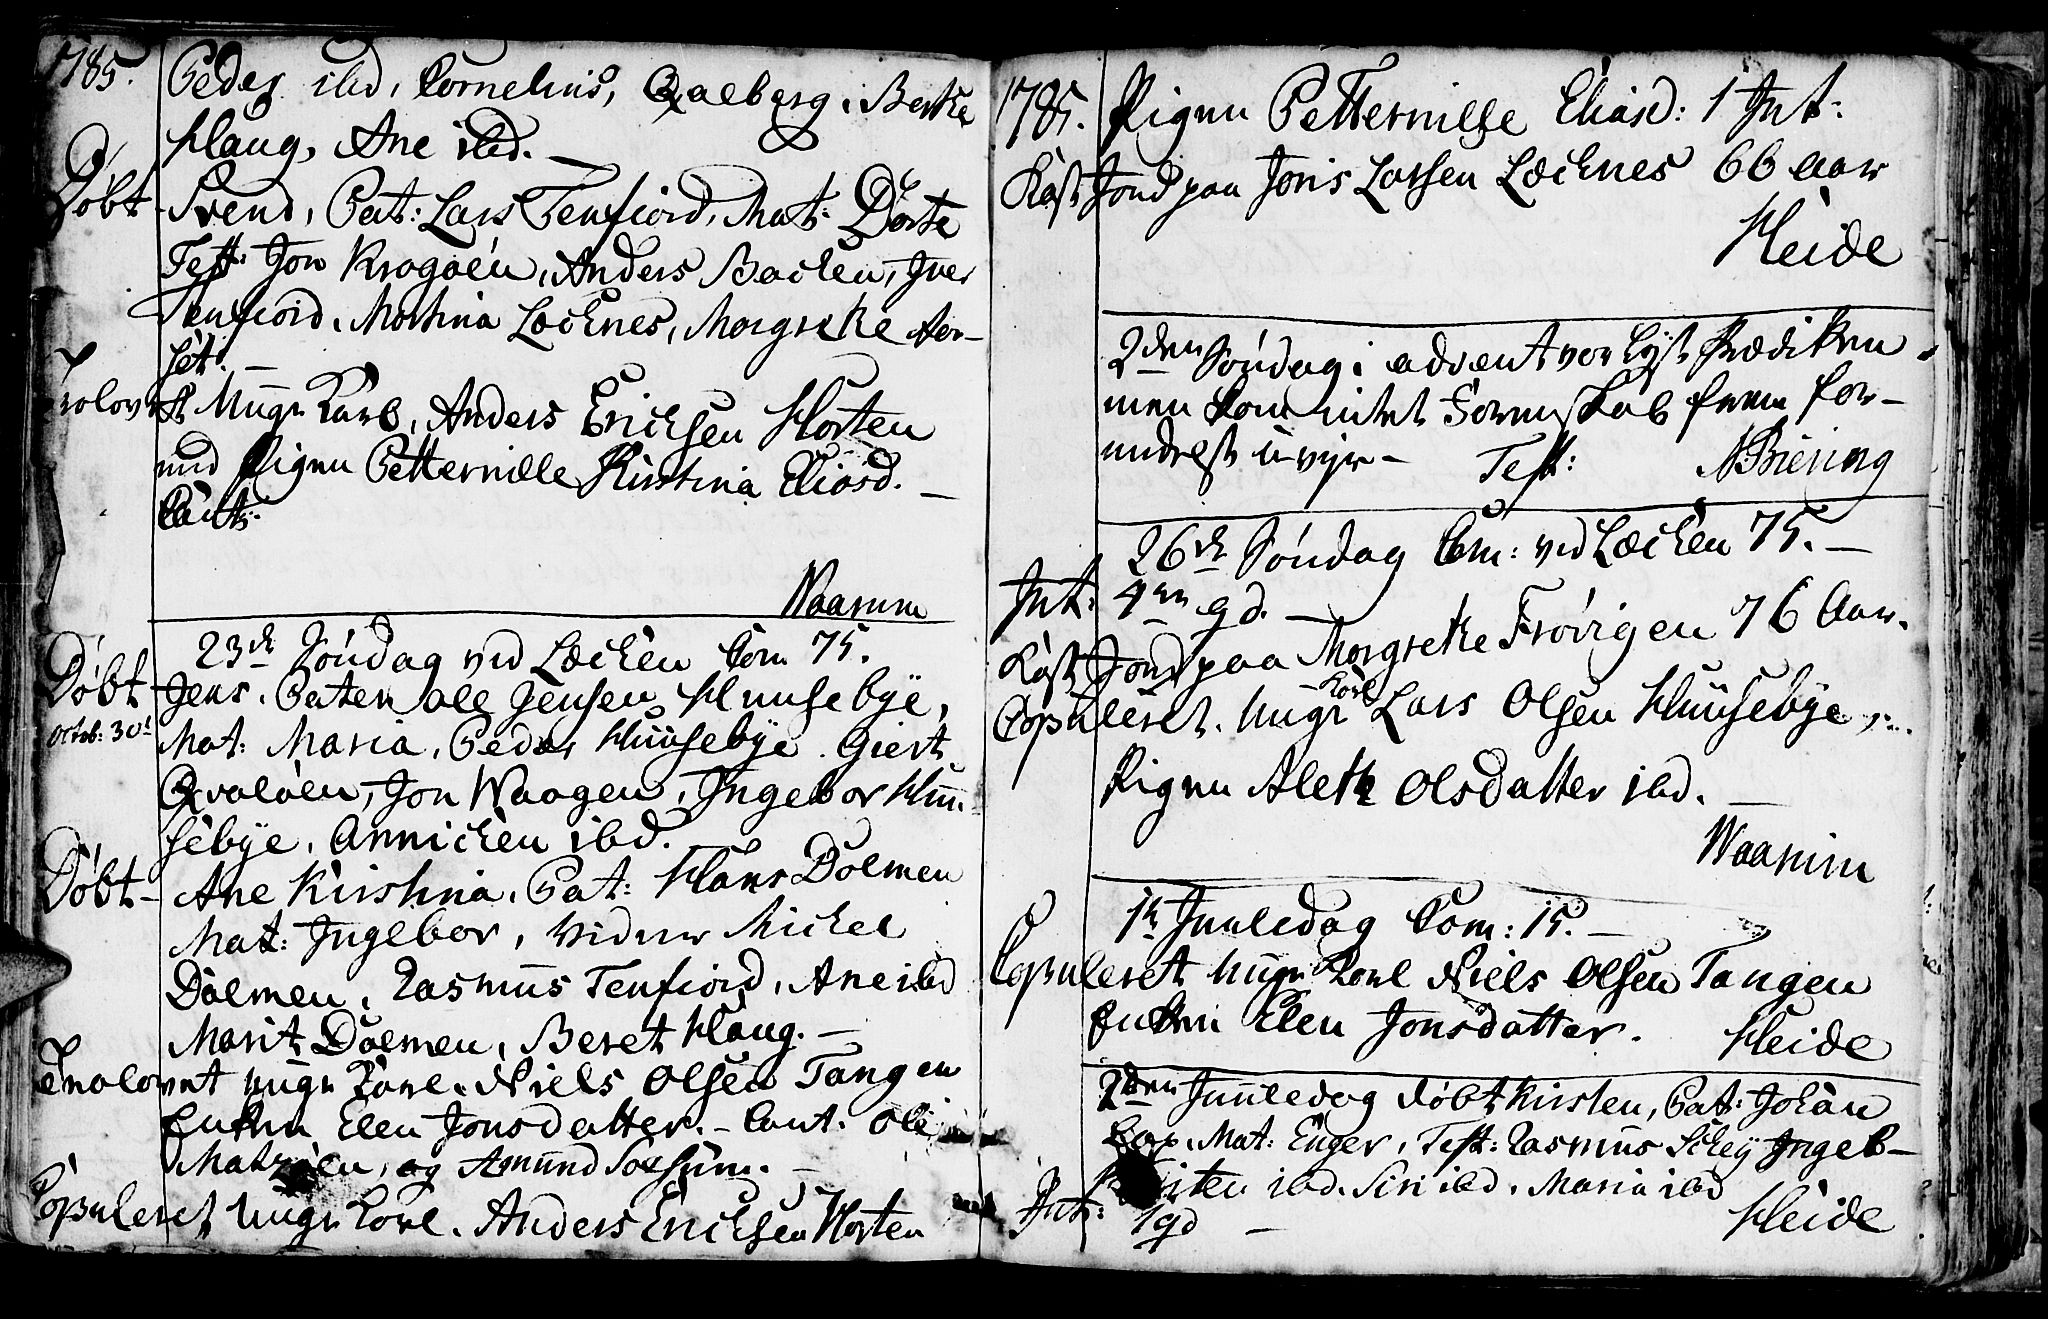 1785.
Peder ibd, Cornelius, Qvalberg, Berthe
Houg, Ane ibd. —
Døbt
Svend, Pat: Lars Tenfiord, Mat: Dorte
Test: Jon Kragøen, Anders Backen, Iver
Tenfiord, Martina Læcknes, Margrethe Aar-
set. —
Trolovet Ungk Karl, Anders Erichsen Horten
med Pigen Petternille Kirstina Eliasd. —
Caut:
Waarum
23de Søndag ved Læcken Com 75.
Døbt
Octob: 30t
Jens, Pater Ole Jensen Huusebye,
Mat: Maria, Peder Huusebye. Giert
Qvaløen, Jon Waagen, Ingebor Huu-
sebye, Annicken ibd.
Døbt —
Ane Kirstina, Pat: Hans Dolmen
Mat: Ingebor, Vidner Mickel
Dolmen, Rasmus Tenfiord, Ane ibd
Marit Dolmen, Beret Houg. —
Trolovet ungk Karl. Niels Olsen Tangen
Enken Elen Jonsdatter. — Caut. Ole
og Amund
Copuleret Ungk Karl. Anders Erichsen Horten
1785.
Pigen Petternille Eliasd: 1 Int:
Kast Jord paa Joris Larsen Læcknes 66 Aar
Heide
2den Søndag i advent var lyst Prædiken
men kom intet Formskab frem for-
medelst uvejr — Test: N Biering
26de Søndag Com: ved Læcken 75. —
Int: 4re gd. —
Kast Jord paa Margrethe Frøvigen 76 Aar.
Copuleret. Ungk Karl Lars Olsen Huusebye,
Pigen Aleth Olsdatter ibd. —
Waarum
1te Juuledag Com: 15. —
Copuleret ungk Karl Niels Olsen Tangen
Enken Elen Jonsdatter.
Heide
2den Juuledag døbt Kirsten, Pat: Johan
Mat: Enger, Test: Rasmus Ingeb-
ibd. Siri ibd. Maria ibd
Int: 1 gd —
Heide